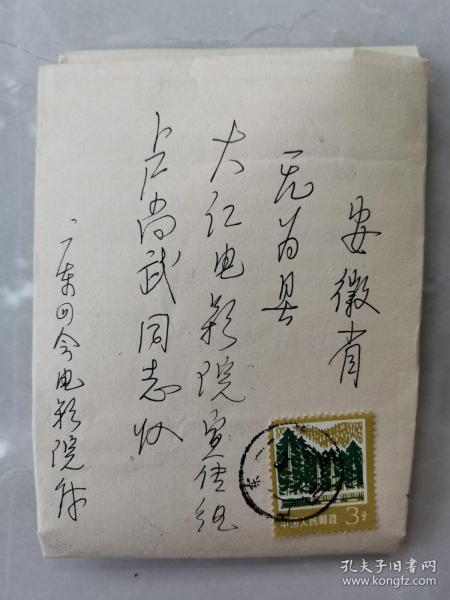 安徽省
无为县
大仁电影院宣传组
卢尚武同志收
广东四会电影院
中国人民邮政
3分
孔夫子旧书网
www.kongfz.com